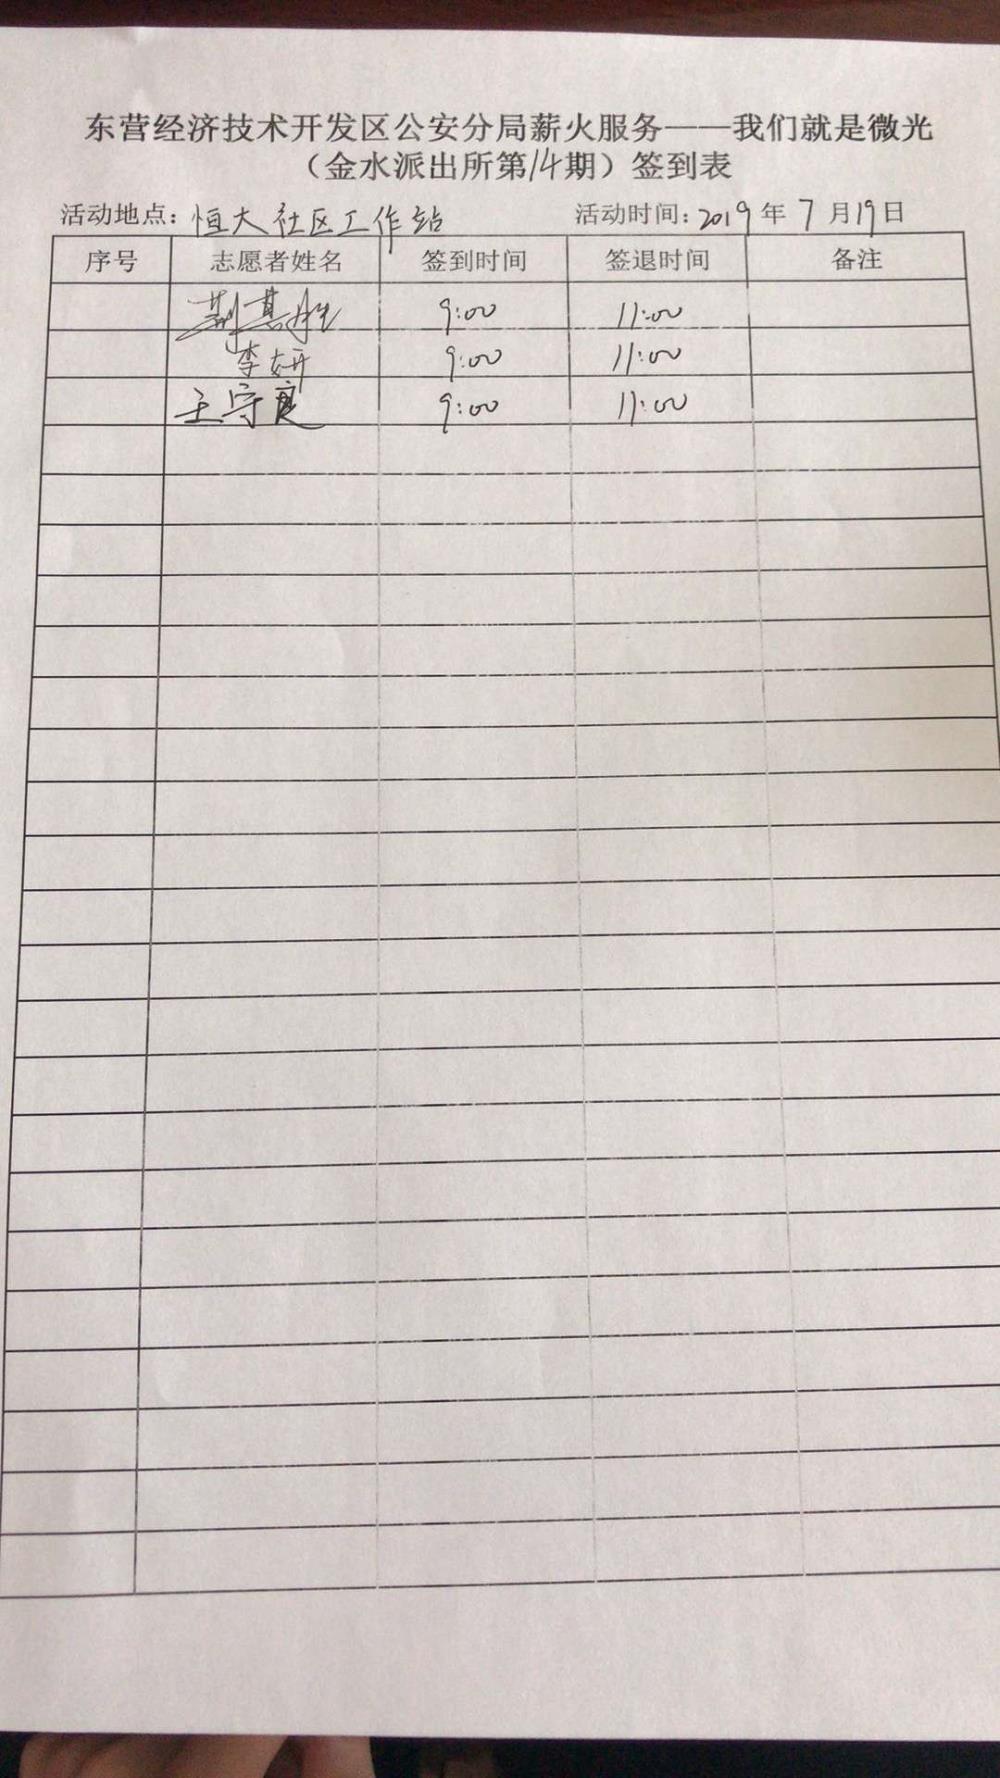 东营经济技术开发区公安分局薪火服务——我们就是微光
（金水派出所第14期）签到表
活动地点：恒大社区工作站 活动时间：2019年7月19日
序号 志愿者姓名 签到时间 签退时间 备注
荆其胜 9:00 11:00
李妍 9:00 11:00
王守良 9:00 11:00